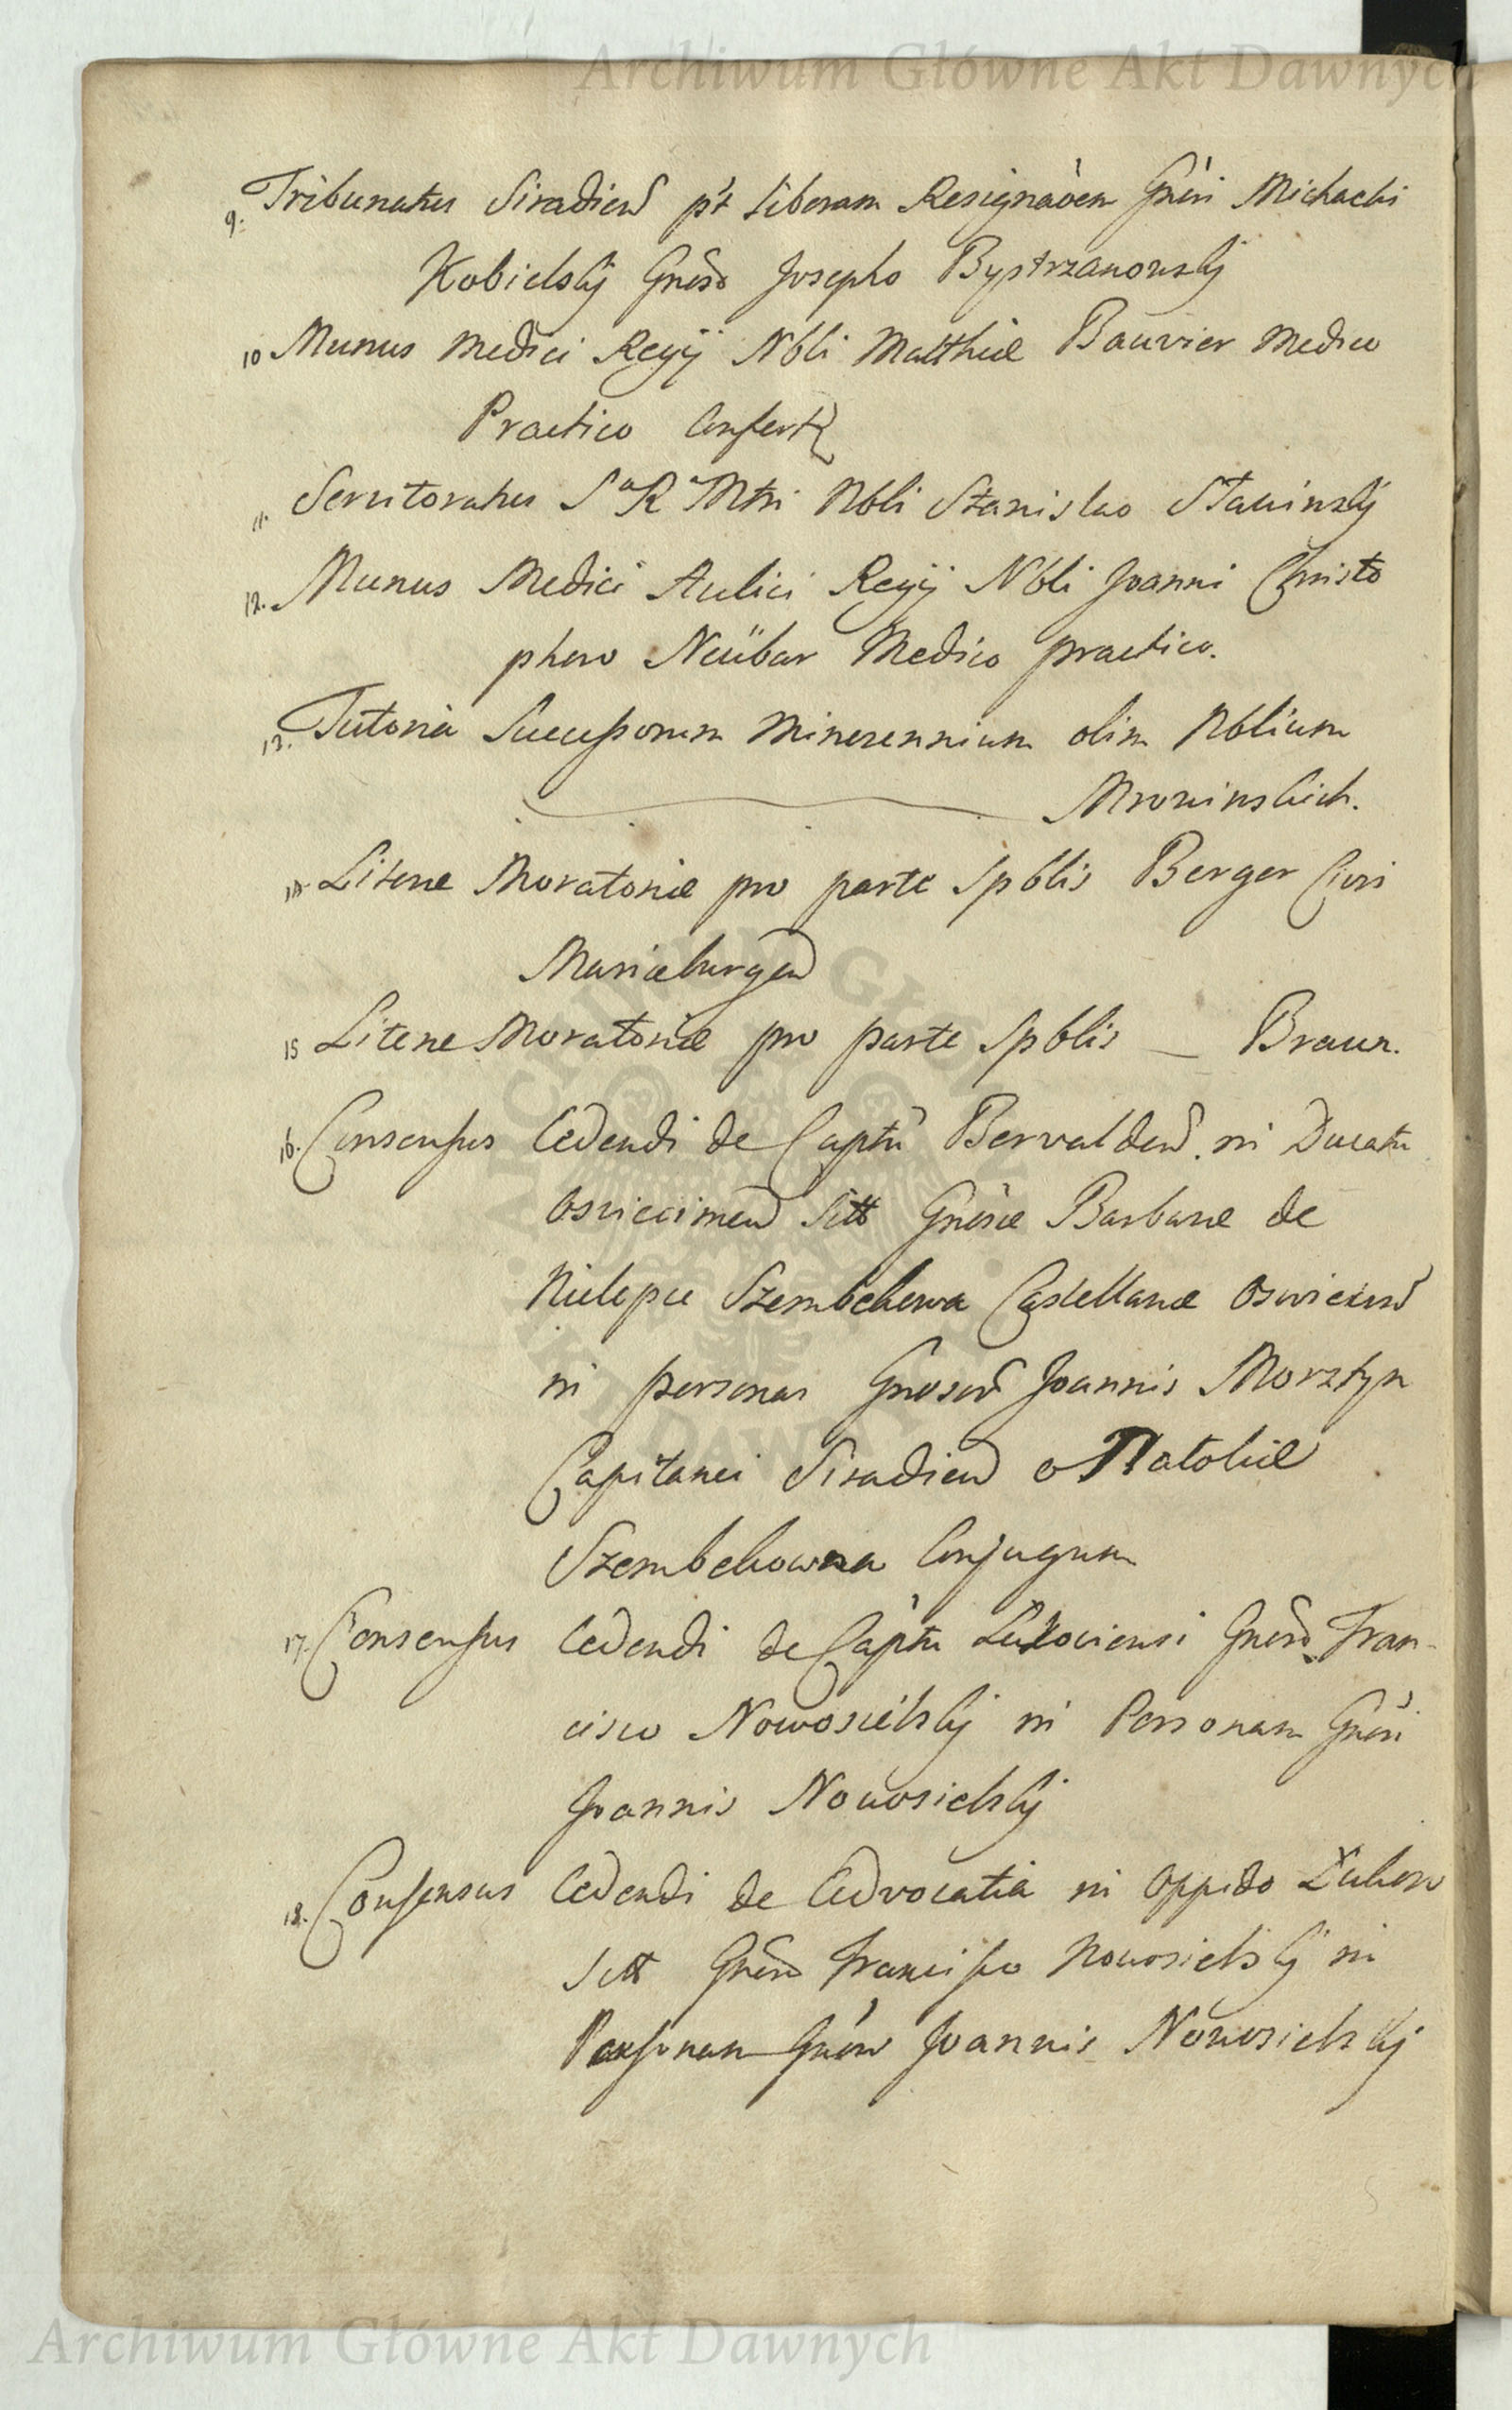 Archiwum Główne Akt Dawnych
9. Tribunatus Siradien pt liberam Resignaoem Gnsi Michaelis
Kobielskij Gnso Josepho Bystrzanowskij
10 Munus Medici Regij Nbli Matthiæ Bauvier Medico
Practico Confert
11. Servitoratus S R Mtti Nbli Stanislao Stawinskij
12. Munus Medici Aulici Regij Nbli Joanni Christo
phero Neübar Medico practico.
13. Tutoria Successorum Minorennium olim Nblium
Mrowinskich.
14 Literæ Moratoriæ pro parte Spblis Berger Civi
Mariæburgen
15 Literæ Moratoriæ pro parte Spblis — Braun.
16. Consensus Cedendi de Captu Bervalden. in Ducatu
Osviecimen Sitt Gnsæ Barbaræ de
Szembekowa Castellanæ Oswiecimen
in personas Gnosor Joannis Morsztyn
Capitanei Siradien & Natoliæ
Szembekowna Conjugum
17. Consensus Cedendi de Captu Lukoviensi Gnso Fran-
cisco Nowosielskij in Personam Gnsi
Joannis Nowosielskij
18. Consensus Cedendi de Advocatia in Oppido Łukow
Sitt Gnso Francisco Nowosielskij in
Personam Gnsi Joannis Nowosielskij
ARCHIWUM GŁÓWNE AKT DAWNYCH
Archiwum Główne Akt Dawnych